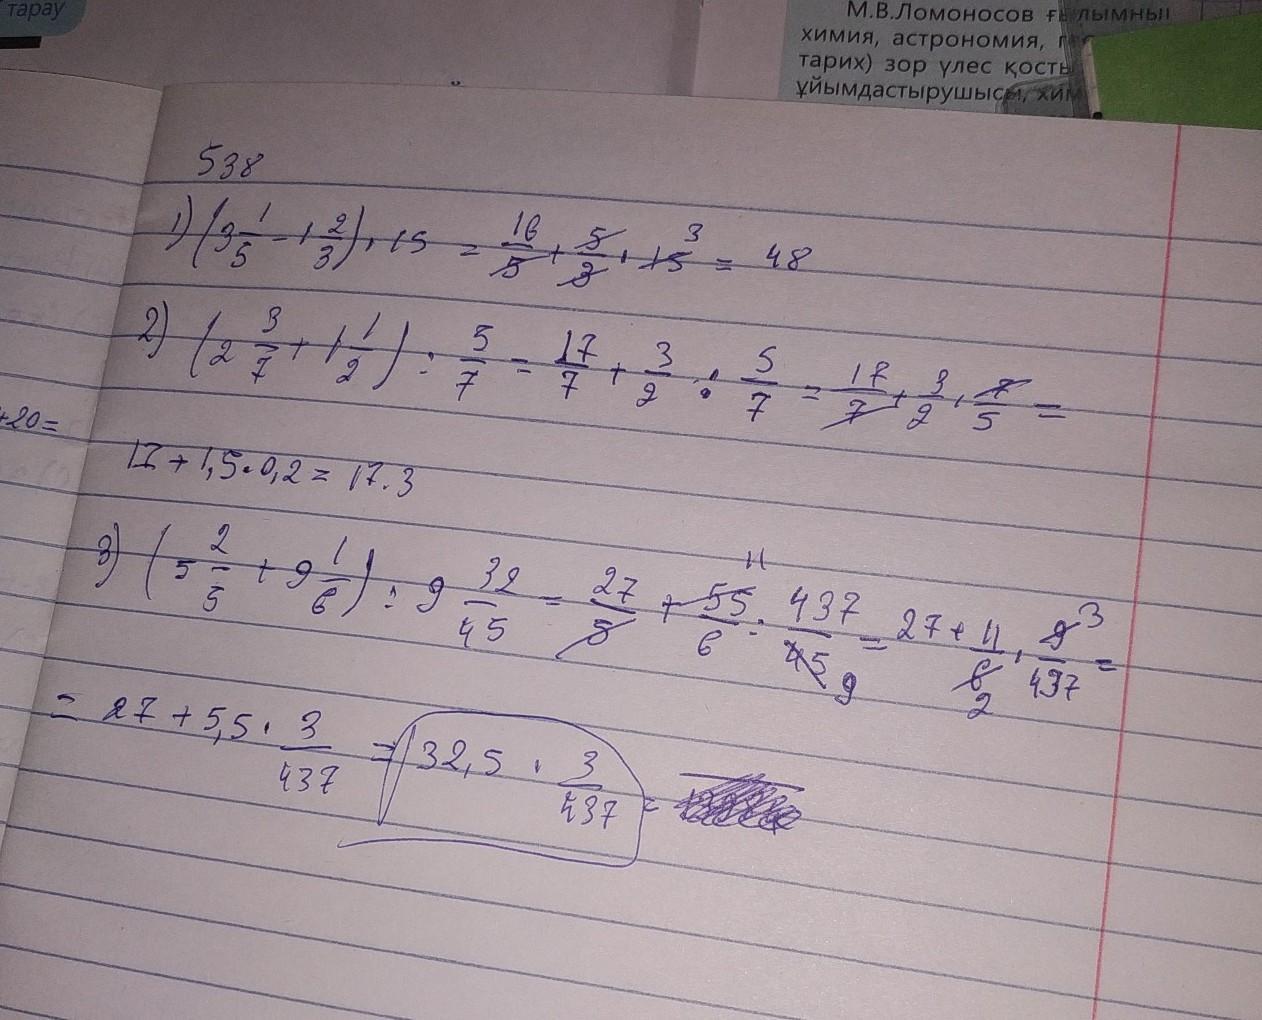 тарау
М.В.Ломоносов ғылымның
химия, астрономия, г
тарих) зор үлес қосты
ұйымдастырушысы, хим
538
1) (3 1/5 - 1 2/3) · 15 = 16/5 + 5/3 · 15 3 = 48
2) (2 3/7 + 1 1/2) : 5/7 = 17/7 + 3/2 : 5/7 = 17/7 + 3/2 · 7/5 =
+20=
17 + 1,5 · 0,2 = 17.3
3) (5 2/5 + 9 1/6) : 9 32/45 = 27/5 + 55 11/6 : 437/45 9 = 27 + 11/6 2 · 9 3/437 =
= 27 + 5,5 · 3/437 = 32,5 · 3/437 =